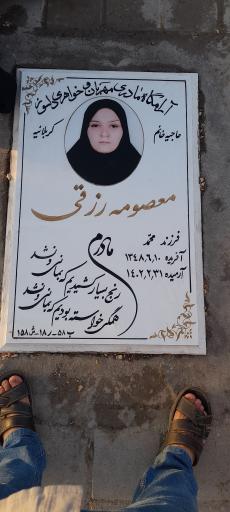 آرامگاه مادری مهربان و خواهری دلسوز
حاجیه خانم
کربلائیه
معصومه رزقی
فرزند محمد
آفریده ۱۳۴۸,۶,۱۰
آرمیده ۱۴۰۲,۲,۳۱
مادرم
رنج بسیار کشیدیم که بمانی و نشد
همگی خواسته بودیم که بمانی و نشد
ب۵۸-ر۱۸-ش۱۵۸